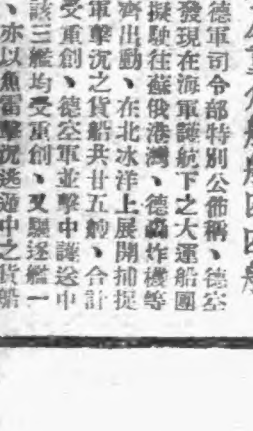 德軍司令部特別公佈稱、德空
發現在海軍護航下之大運船團
擬駛往蘇俄港灣、德轟炸機等
齊出動、在北冰洋上展開捕捉
軍擊沉之貨船共廿五艘、合計
受重創、德空軍並擊中護送中
該三艦均受重創、又驅逐艦一
、亦以魚雷擊沉逃遁中之貨船